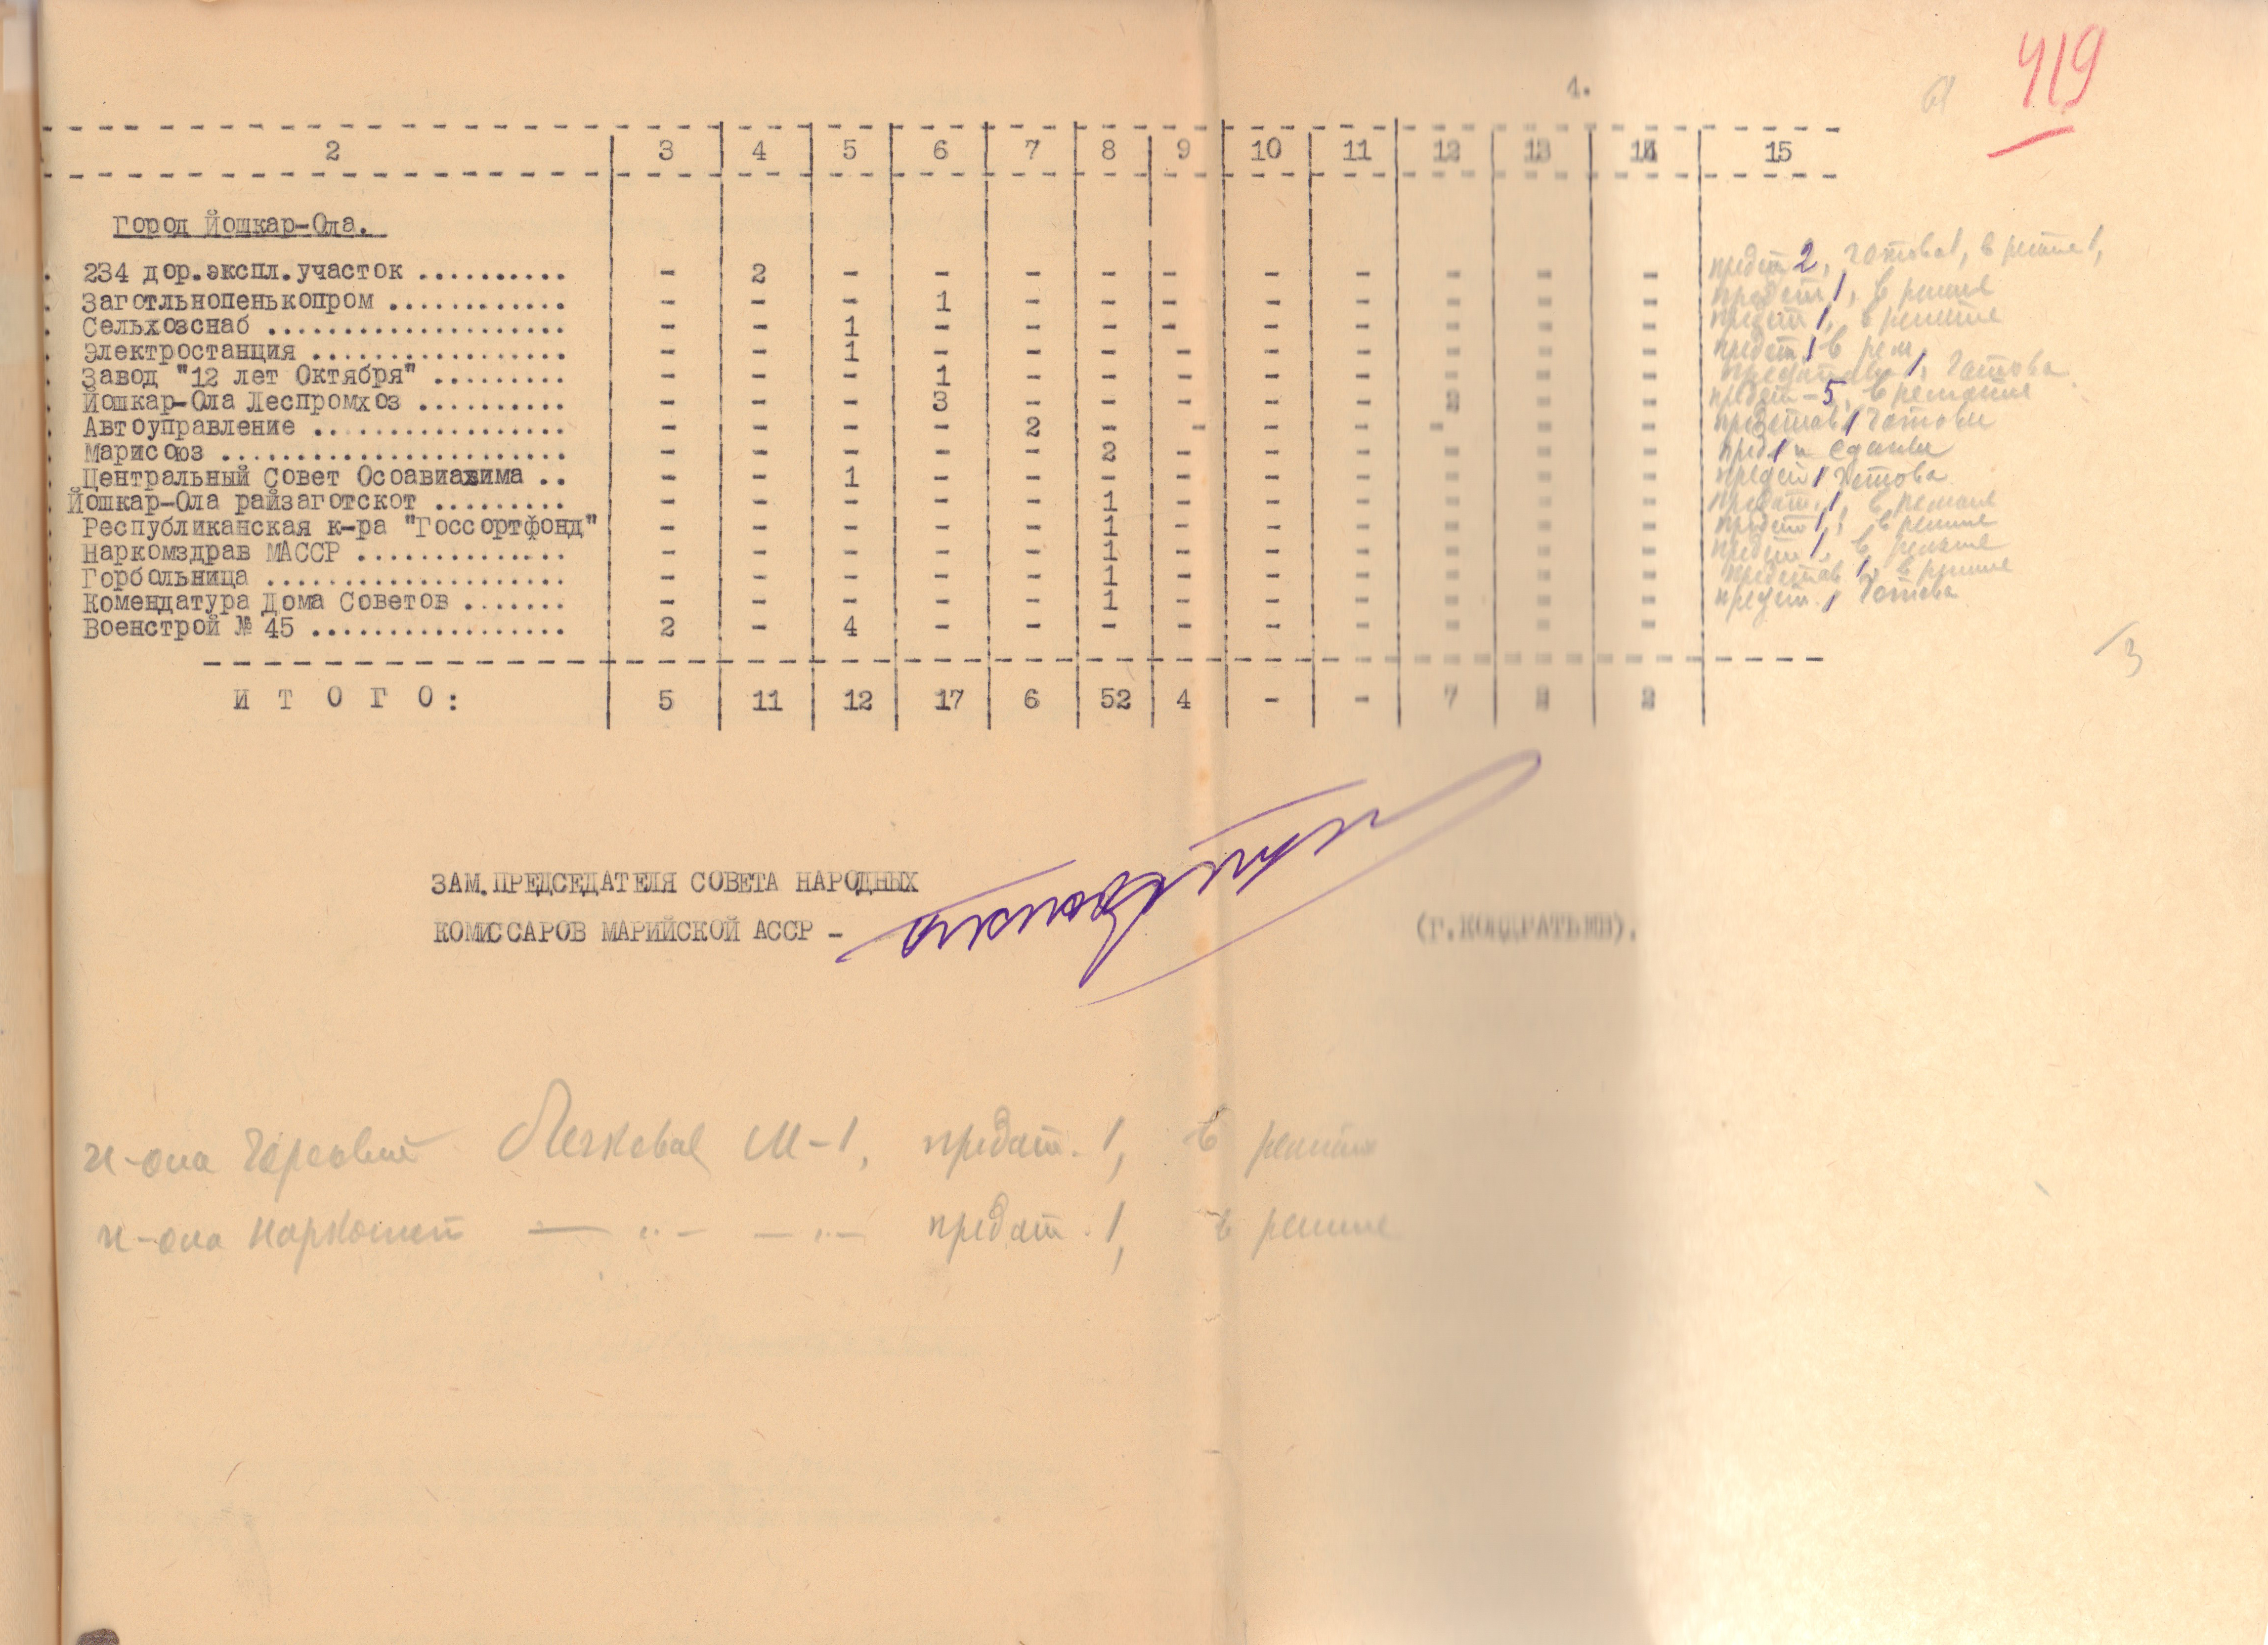 419
4.
2 3 4 5 6 7 8 9 10 11 12 13 14 15
город Йошкар-Ола.
234 дор.экспл.участок .......... - 2 - - - - - - - - - - предст 2, готова 1, в ремте 1,
Заготльнопенькопром ............ - - - 1 - - - - - - - - предст 1, в ремте
Сельхозснаб .................... - - 1 - - - - - - - - - предст 1, в ремте
Электростанция ................. - - 1 - - - - - - - - - предст 1 в рем
Завод "12 лет Октября" ......... - - - 1 - - - - - - - - 1, готова
Йошкар-Ола Леспромхоз .......... - - - 3 - - - - - - - предст - 5, в ремонте
Автоуправление ................. - - - - 2 - - - - - - - представ 1 готови
Марисоюз ....................... - - - - - 2 - - - - - - пред 1
Центральный Совет Осоавиахима .. - - 1 - - - - - - - - - предст 1 готова
Йошкар-Ола райзаготскот ......... - - - - - 1 - - - - - - предст. 1, в ремонте
Республиканская к-ра "Госсортфонд" - - - - - 1 - - - - - - предст 1, в ремте
Наркомздрав МАССР .............. - - - - - 1 - - - - - - предст 1, в ремонте
Горбольница .................... - - - - - 1 - - - - - - представ 1, в ремте
Комендатура Дома Советов ....... - - - - - 1 - - - - - - предст. 1 готова
Военстрой № 45 ................. 2 - 4 - - - - - - - - -
3
И Т О Г О: 5 11 12 17 6 52 4 - - 7
ЗАМ.ПРЕДСЕДАТЕЛЯ СОВЕТА НАРОДНЫХ
КОМИССАРОВ МАРИЙСКОЙ АССР - (Г.КОНДРАТЬЕВ).
И-ола Горсовет Легковая М-1, предст. 1, в ремте
И-ола — " — — " — предст. 1, в ремте